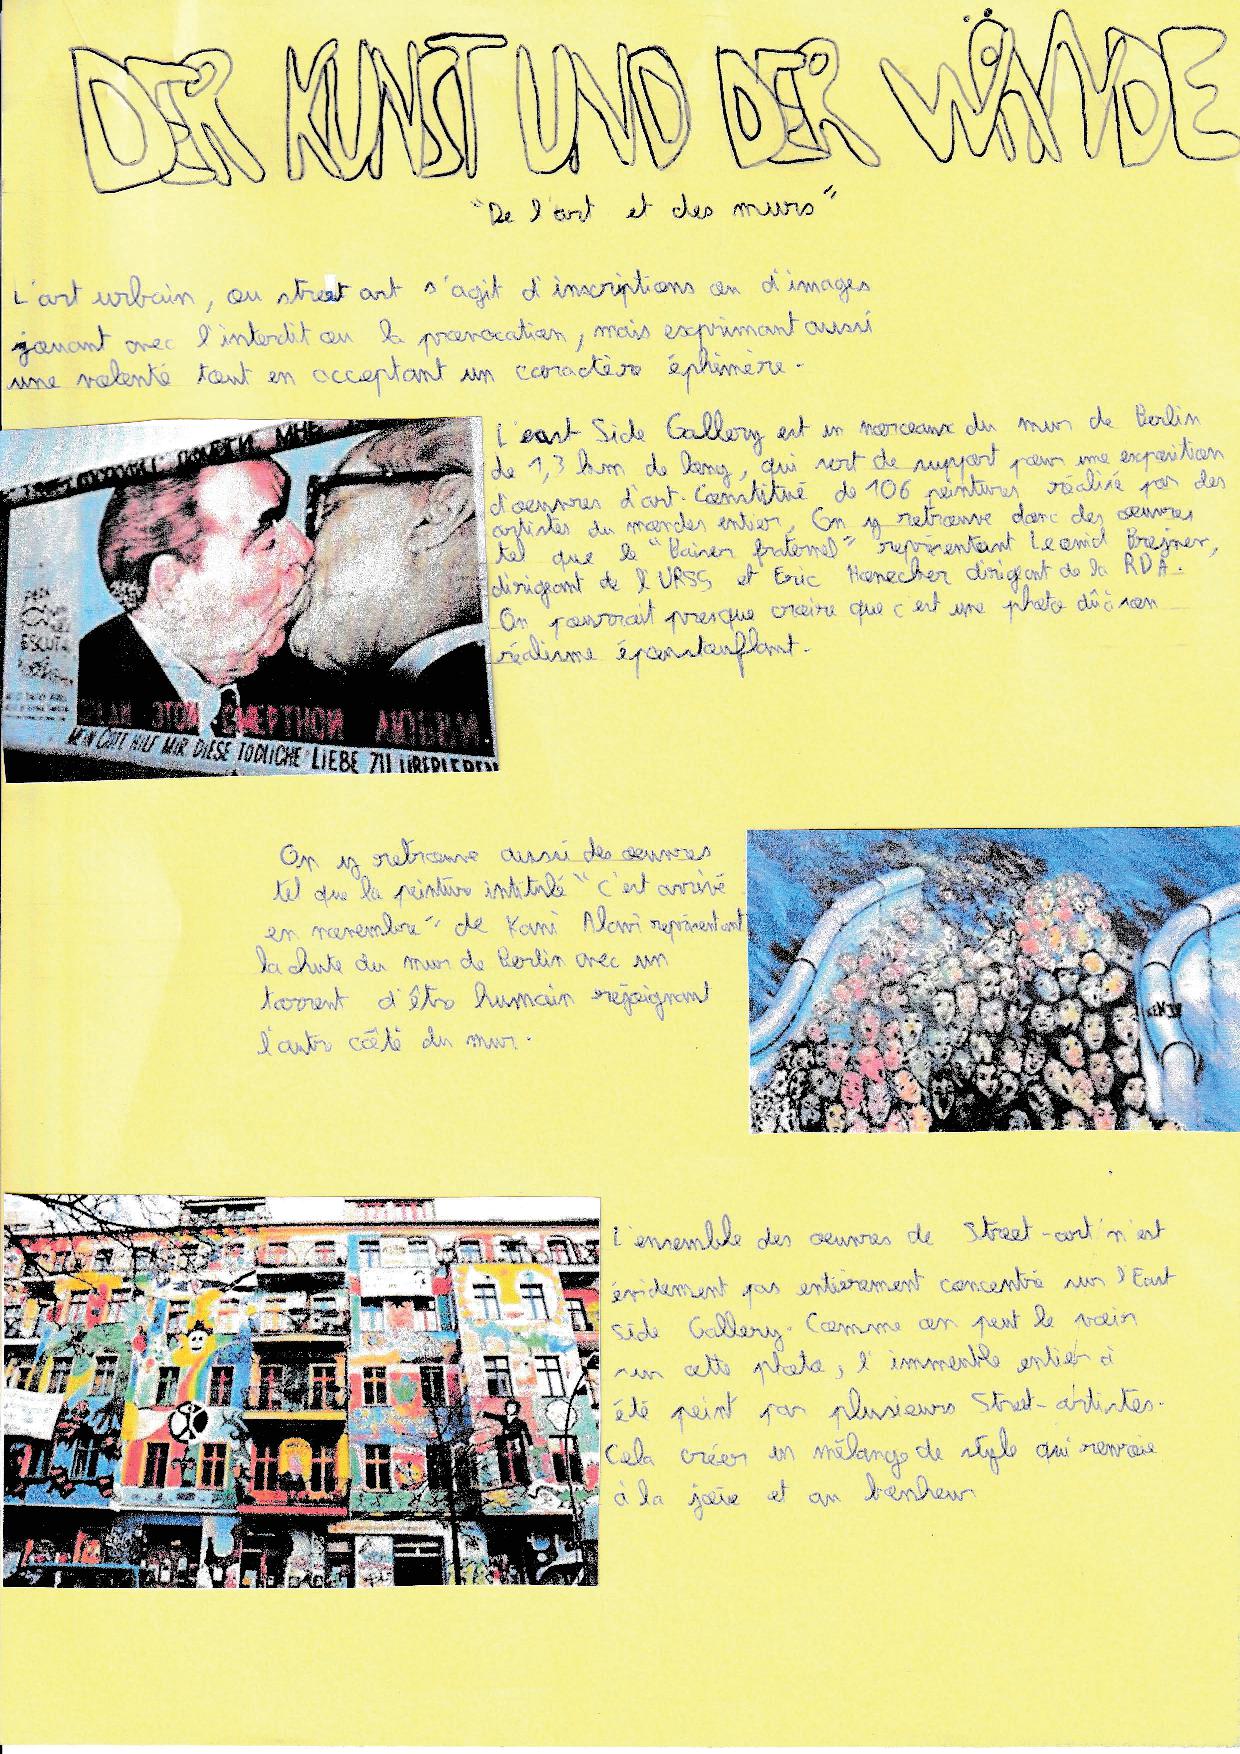 DER KUNST UND DER WÄNDE
"De l'art et des murs"
L'art urbain, ou street art s'agit d'inscriptions ou d'images
jouant avec l'interdit ou la provocation, mais exprimant aussi
une volonté tout en acceptant un caractère éphèmère.
L'east Side Gallery est un morceaux du mur de Berlin
de 1,3 km de long, qui sert de support pour une exposition
d'oeuvres d'art. Constitué de 106 peintures réalisé par des
artistes du mondes entier, On y retrouve donc des oeuvres
tel que le "Baiser fraternel" représentant Leonid Brejnev,
dirigant de l'URSS et Eric Honecker dirigant de la RDA.
On pourrait presque croire que c'est une photo dû à son
réalisme époustouflant.
ESCUT
MEIN GOTT HILF MIR DIESE TODLICHE LIEBE ZU ÜBERLEBEN
On y retrouve aussi des oeuvres
tel que la peinture intitulé "C'est arrivé
en novembre" de Kani Alavi représentant
la chute du mur de Berlin avec un
torrent d'être humain rejoignant
l'autre côté du mur.
L'ensemble des oeuvres de Street-art n'est
évidement pas entièrement concentré sur l'East
Side Gallery. Comme on peut le voir
sur cette photo, l'immeuble entier à
été peint par plusieurs Street-artistes.
Cela créer un mélange de style qui renvoie
à la joie et au bonheur